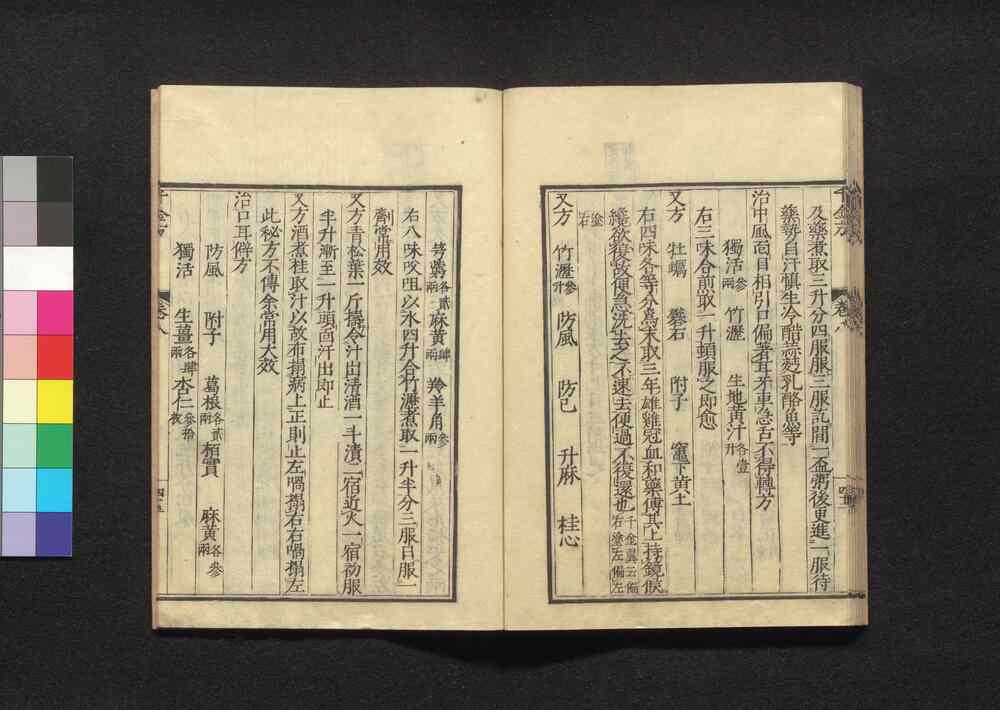 及藥煮取三升分四服服三服訖間一盃粥後更進一服待
藥勢自汗慎生冷醋蒜麪乳酪魚等
治中風面目相引口偏著耳牙車急舌不得轉方
獨活三兩 竹瀝 生地黃汁各壹升
右三味合煎取一升頓服之即愈
又方 牡蠣 礬石 附子 竈下黃土
右四味各等分為末取三年雄雞冠血和藥傅其上持鏡候
纔欲復故便急洗去之不速去便過不復還也千金翼云偏右塗左偏左
塗右
又方 竹瀝參升 防風 防己 升麻 桂心
芎藭各貳兩 麻黃肆兩 羚羊角參兩
右八味㕮咀以水四升合竹瀝煮取二升半分三服日服一
劑常用效
又方青松葉一斤擣令汁出清酒一斗漬二宿近火一宿初服
半升漸至一升頭面汗出即止
又方酒煮桂取汁以故布搨病上正則止左喎搨右右喎搨左
此秘方不傳余常用大效
治口耳僻方
防風 附子 葛根各貳兩 栢實 麻黃各參兩
獨活 生薑各肆兩 杏仁參拾枚
千金方 卷八